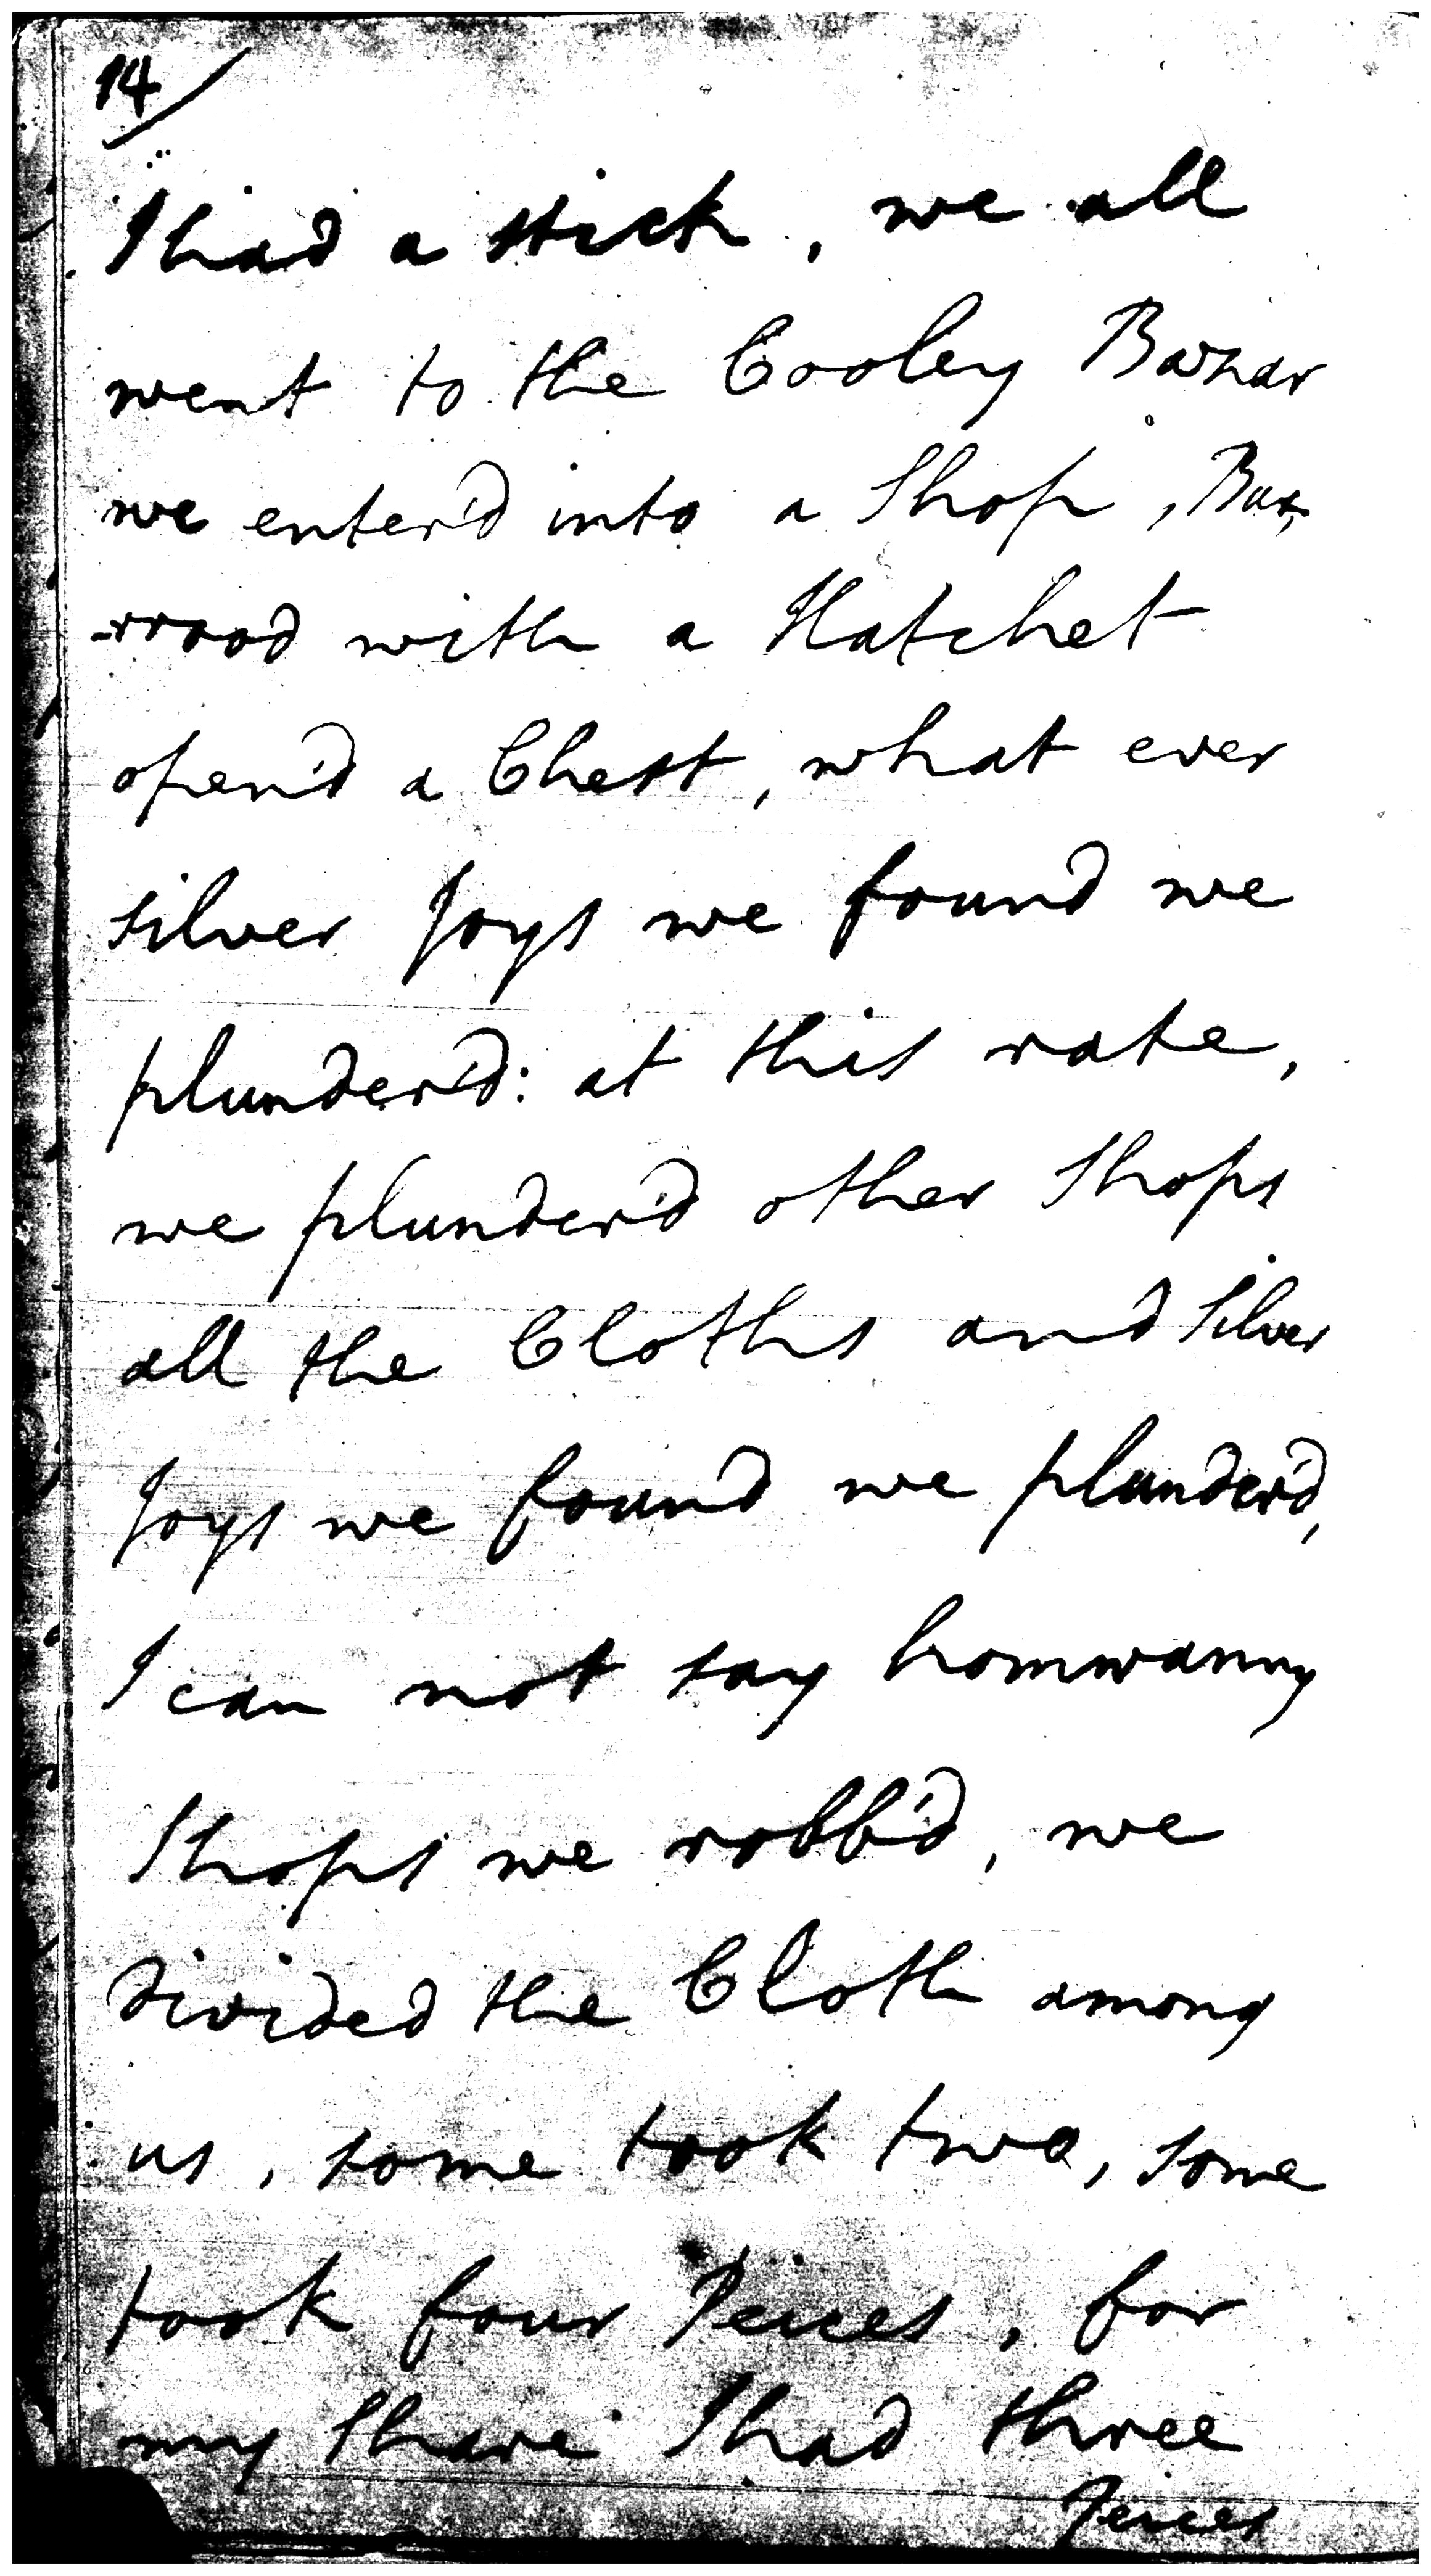 14/
I had a stick, we all
went to the Cooley Bazar
we enter'd into a Shop, Bux,
-rrood with a Hatchet
open'd a Chest, what ever
silver Joys we found we
plunder'd: at this rate,
we plunder'd other Shops
all the Cloths and silver
Joys we found we plunder'd,
I can not say homwanny
Shops we robb'd, we
divided the Cloth among
us, some took two, some
took four Peices, for
my Share I had three
Peices